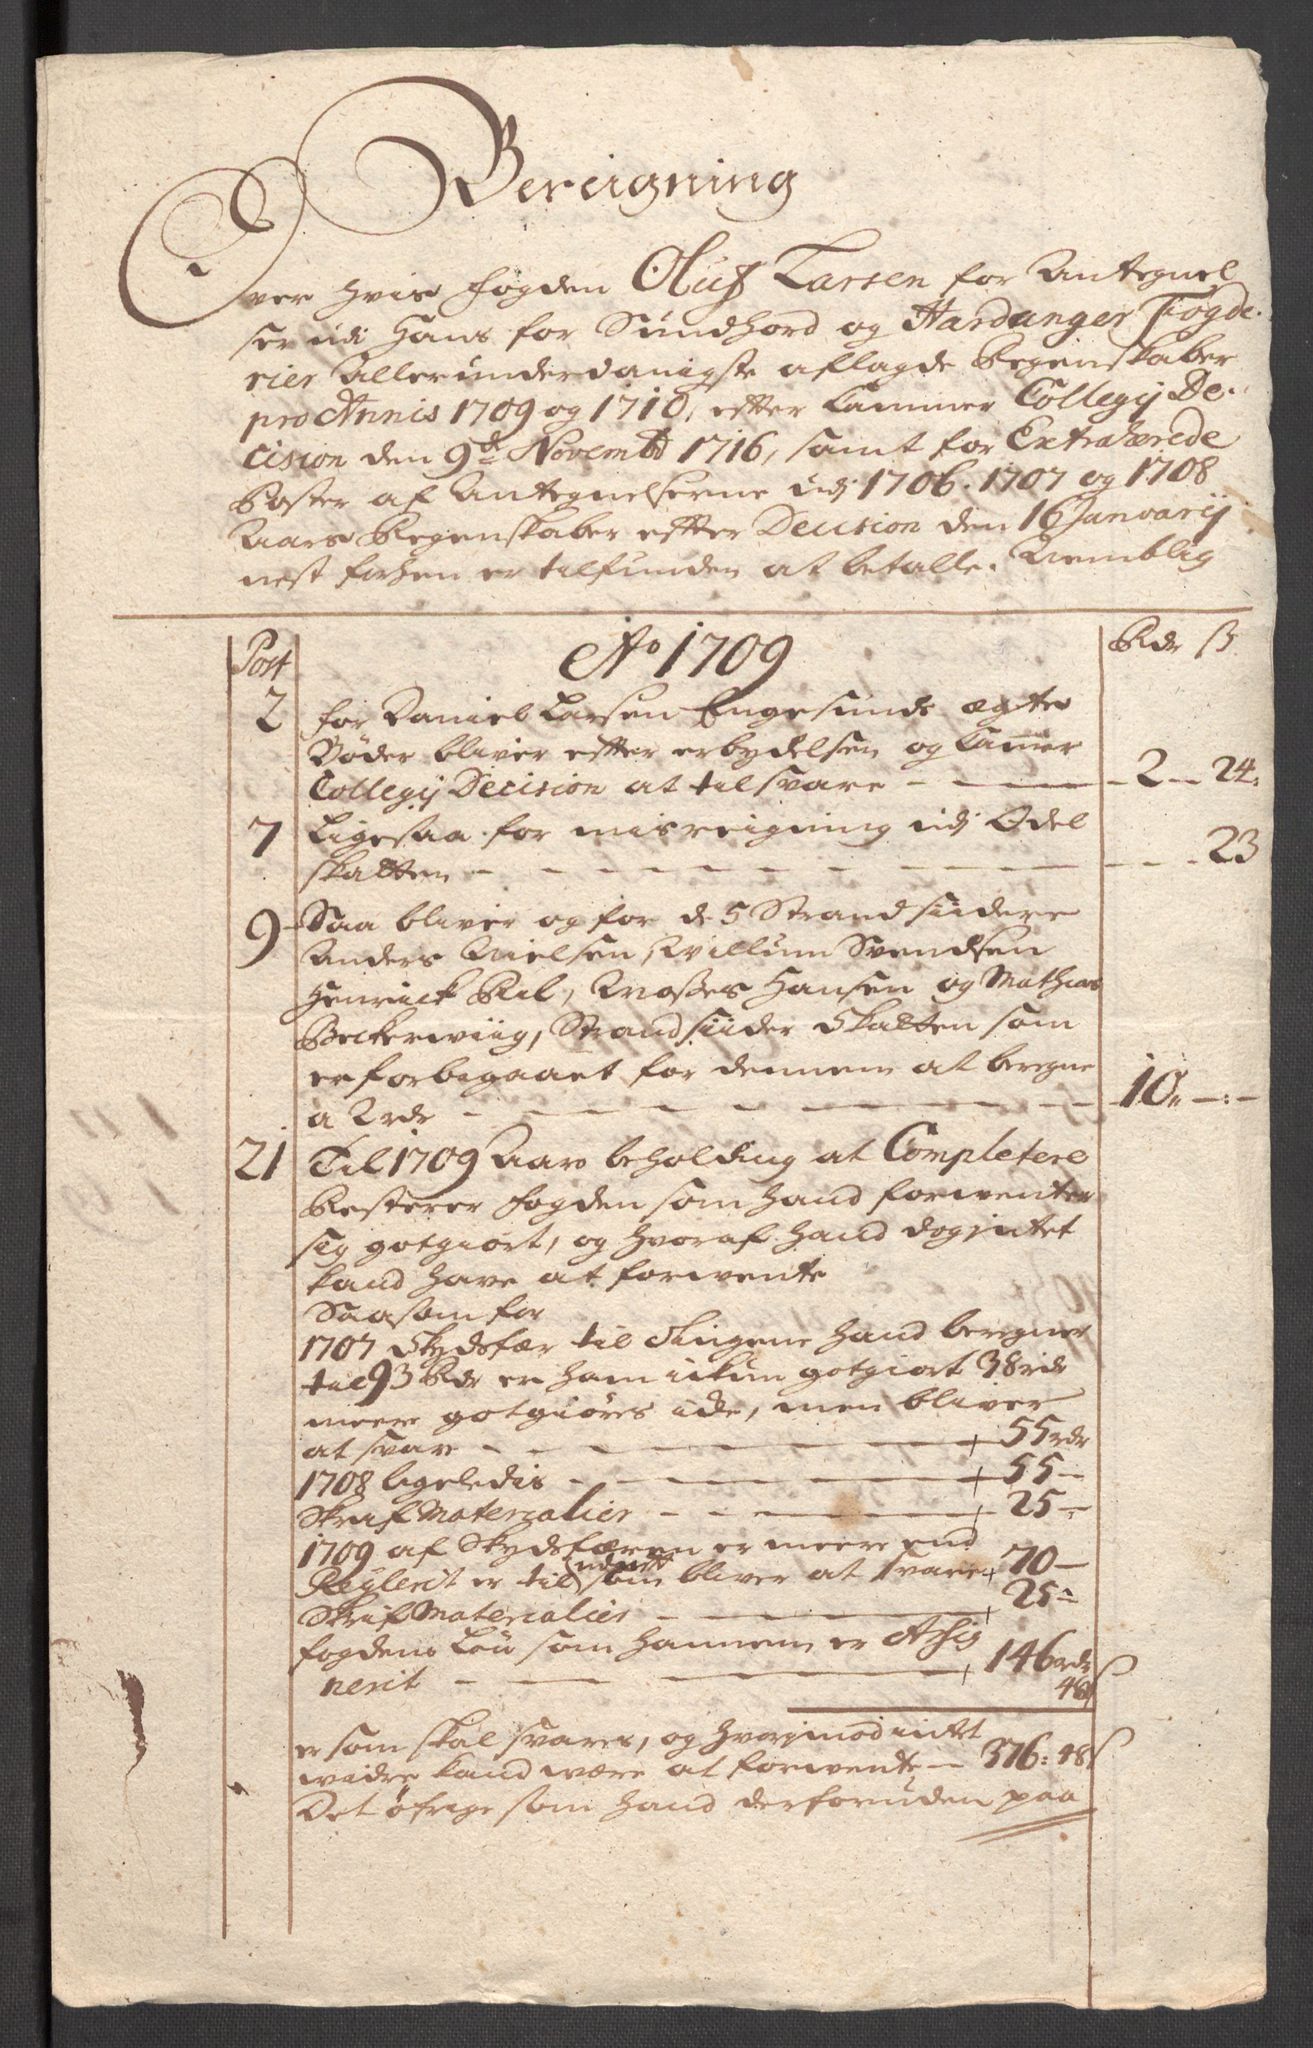 Bereigning
Over hvis fogden Oluf Larsen for Antegnel
ser udi hans for Sundhord og Hardanger Fogde-
rier Allerunderdanigste aflagde Regenskaber
pro Annis 1709 og 1710, efter Cammer Collegij De-
cision den 9de Novembr 1716, samt for Extraherede
Poster af Antegnelserne udj 1706. 1707 og 1708
Aars Regenskaber efter Decision den 16 Januarij
nest forhen er tilfunden at betalle. Nemblig
Post Ao 1709 Rdr ß
2 for Daniel Larsen Engesunds ægte
Bøder bliver efter erbydelsen og Camer
Collegij Decision at tilsvare - 2 - 24
7 Ligesaa for misreigning udj Odel
skatten - 23
9 Saa bliver og for de 5 Strandsiidere
Anders Nielsen, Villum Svendsen
Henrick Hansen og Mathias
Beckerwiig, Strandsiider Skatten som
er forbigaaet for dennem at beregne
a 2 rdr - 10 - : -
21 Til 1709 Aars beholding at Completere
Resterer fogden som hand forwenter
sig gotgiort, og hvoraf hand dog intet
kand have at forwente
Saasom for
1707 Skydsfær til Tingene hand beregner
til 93 Rdr er ham ickun gotgiort 38 rdr
meere gotgiøres icke, men bliver
at svar - 55 rdr
1708 ligeledis - 55 -
Skrif Materialier - 25 -
1709 af Skydsfærren er meere end
Reglerit er til udgift som bliver at svare 70 -
Skrif Materialier - 25 -
fogdens Løn som hannem er Assig
nerit - 146 rdr 48 ß
er som skal svares, og hvorimod intet
widre kand være at forwente - 376: 48 ß
Det øfrige som hand derforuden paa